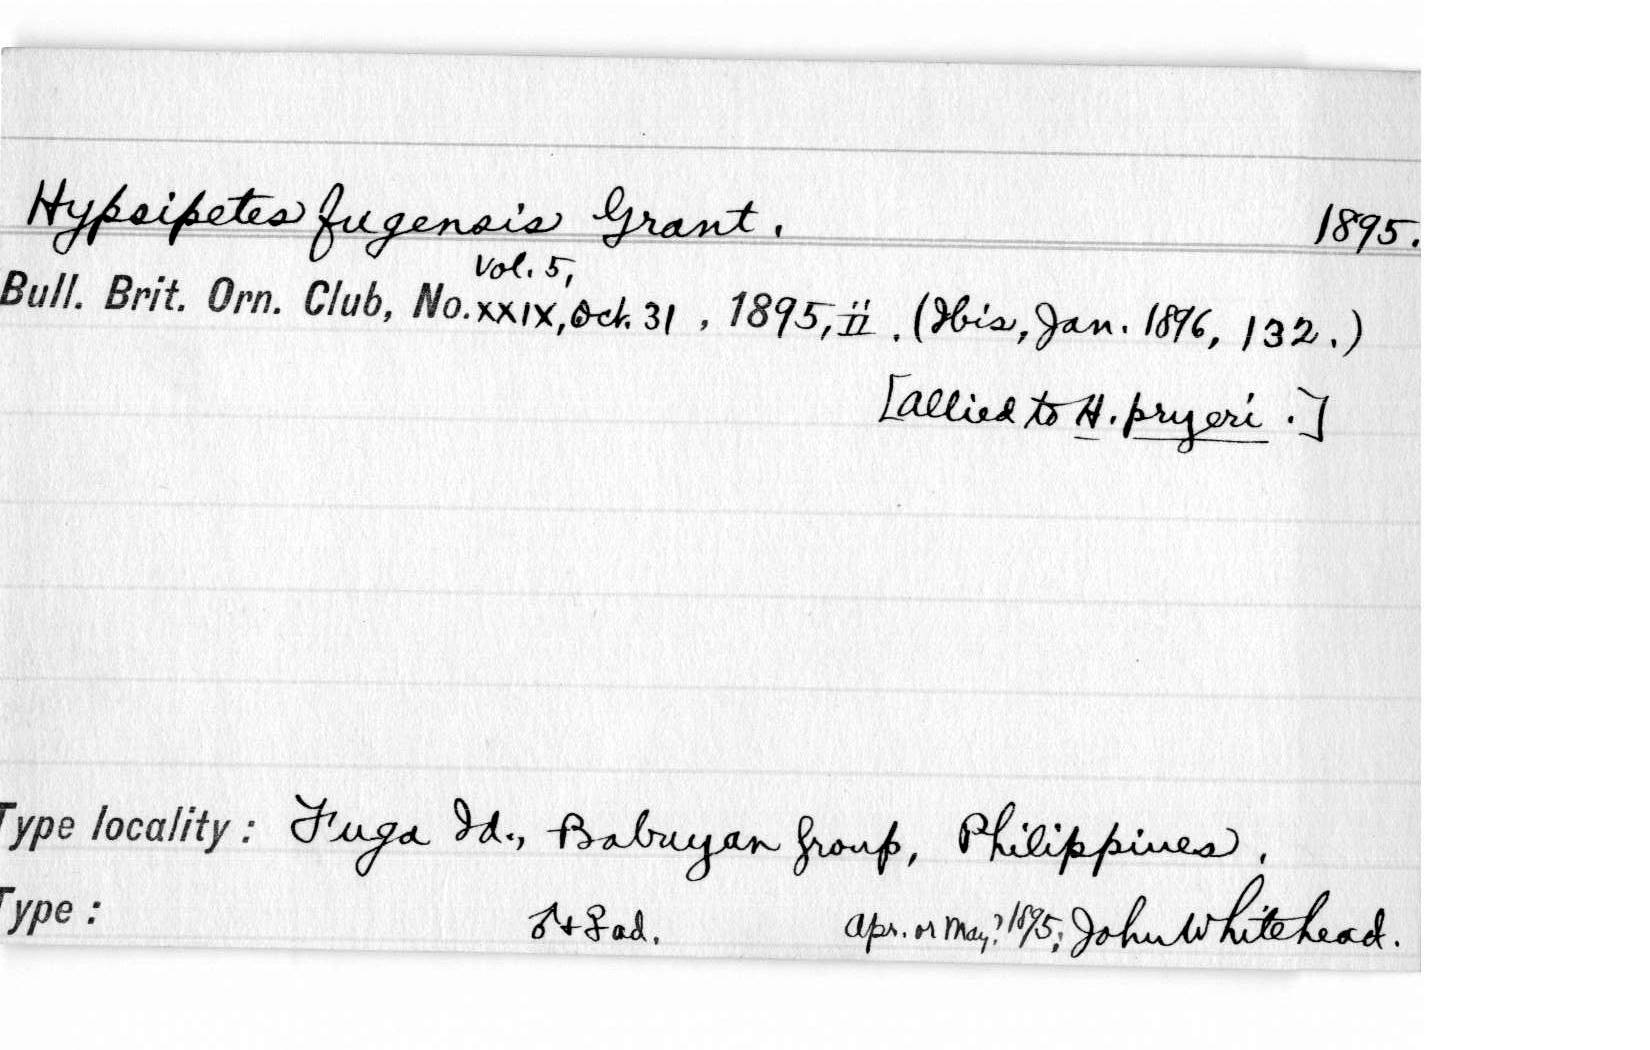 Hypsipetes fugensis Grant. 1895.
Vol. 5,
Bull. Brit. Orn. Club, No. XXIX, Oct. 31, 1895, ii. (Ibis, Jan. 1896, 132.)
[allied to H. pryeri.]
Type locality: Fuga Id., Babuyan Group, Philippines.
Type: ♂ + ♀ ad. Apr. or May? 1895; John Whitehead.